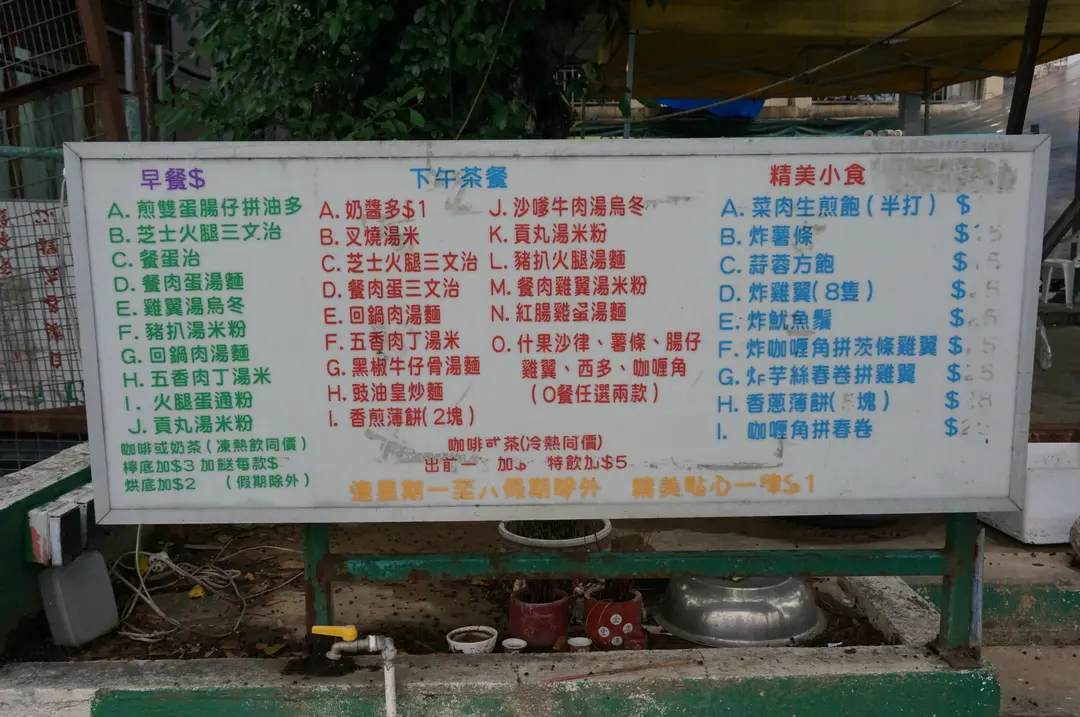 早餐$
A. 煎雙蛋腸仔拼油多
B. 芝士火腿三文治
C. 餐蛋治
D. 餐肉蛋湯麵
E. 雞翼湯烏冬
F. 豬扒湯米粉
G. 回鍋肉湯麵
H. 五香肉丁湯米
I. 火腿蛋通粉
J. 貢丸湯米粉
咖啡或奶茶(凍熱飲同價)
檸底加$3 加餸每款$
烘底加$2 (假期除外)
下午茶餐
A. 奶醬多$1
B. 叉燒湯米
C. 芝士火腿三文治
D. 餐肉蛋三文治
E. 回鍋肉湯麵
F. 五香肉丁湯米
G. 黑椒牛仔骨湯麵
H. 豉油皇炒麵
I. 香煎薄餅(2塊)
J. 沙嗲牛肉湯烏冬
K. 貢丸湯米粉
L. 豬扒火腿湯麵
M. 餐肉雞翼湯米粉
N. 紅腸雞蛋湯麵
O. 什果沙律、薯條、腸仔
雞翼、西多、咖喱角
(O餐任選兩款)
咖啡或茶(冷熱同價)
出前一 加$ 特飲加$5
逢星期一至六假期除外 精美點心一律$1
精美小食
A. 菜肉生煎飽(半打) $
B. 炸薯條 $
C. 蒜蓉方飽 $
D. 炸雞翼(8隻) $
E. 炸魷魚鬚 $
F. 炸咖喱角拼茨條雞翼 $
G. 炸芋絲春卷拼雞翼 $
H. 香蔥薄餅( 塊) $
I. 咖喱角拼春卷 $